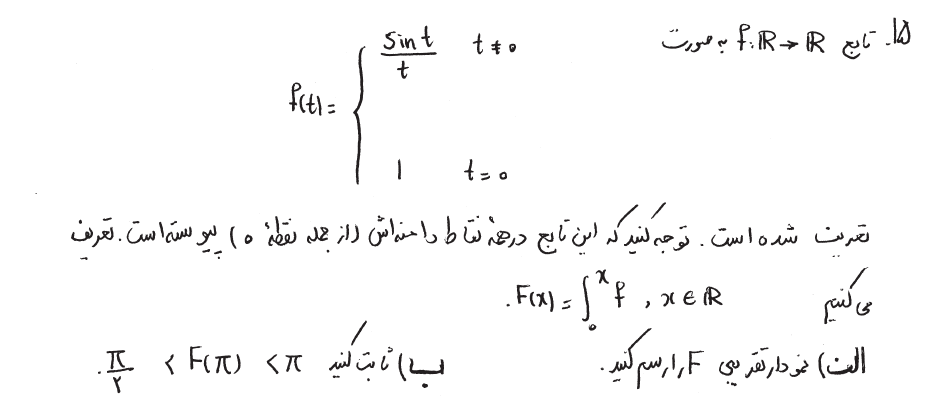 ۱۵. تابع f: ℝ → ℝ به صورت
f(t) = { sin t / t    t ≠ 0
1    t = 0
تعریف شده است. توجه کنید که این تابع در همهٔ نقاط دامنه‌اش (از جمله نقطهٔ 0) پیوسته است. تعریف
می‌کنیم F(x) = ∫₀ˣ f , x ∈ ℝ.
الف) نمودار تقریبی F را رسم کنید. ب) ثابت کنید π/۲ < F(π) < π.